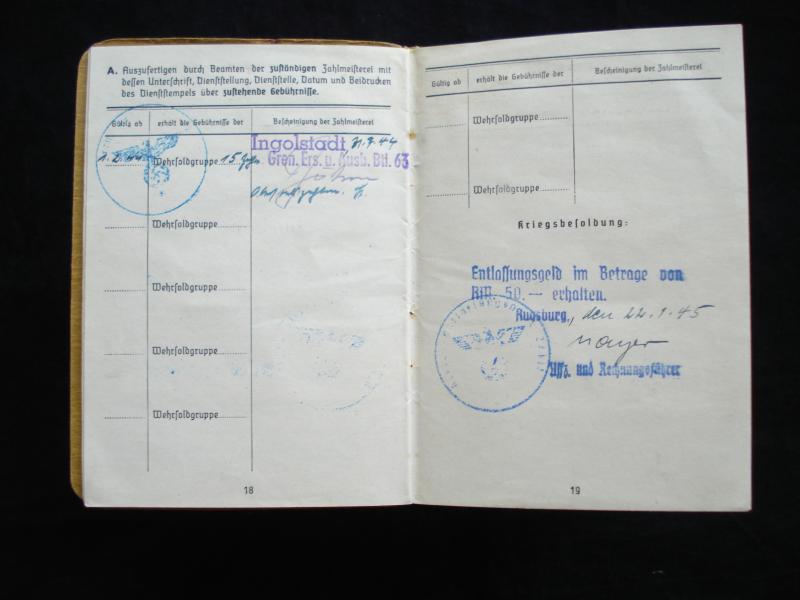 A. Auszufertigen durch Beamten der zuständigen Zahlmeisterei mit
dessen Unterschrift, Dienststellung, Dienststelle, Datum und Beidrucken
des Dienststempels über zustehende Gebührnisse.
Gültig ab erhält die Gebührnisse der Bescheinigung der Zahlmeisterei
Ingolstadt
1.2.44 Wehrsoldgruppe 15 Gren. Ers. u. Ausb. Btl. 63
Wehrsoldgruppe
Wehrsoldgruppe
Wehrsoldgruppe
Wehrsoldgruppe
18
Gültig ab erhält die Gebührnisse der Bescheinigung der Zahlmeisterei
Wehrsoldgruppe
Wehrsoldgruppe
Kriegsbesoldung:
Entlassungsgeld im Betrage von
RM. 50.— erhalten.
Augsburg, den 22.1.45
Mayer
Uffz. und Rechnungsführer
19